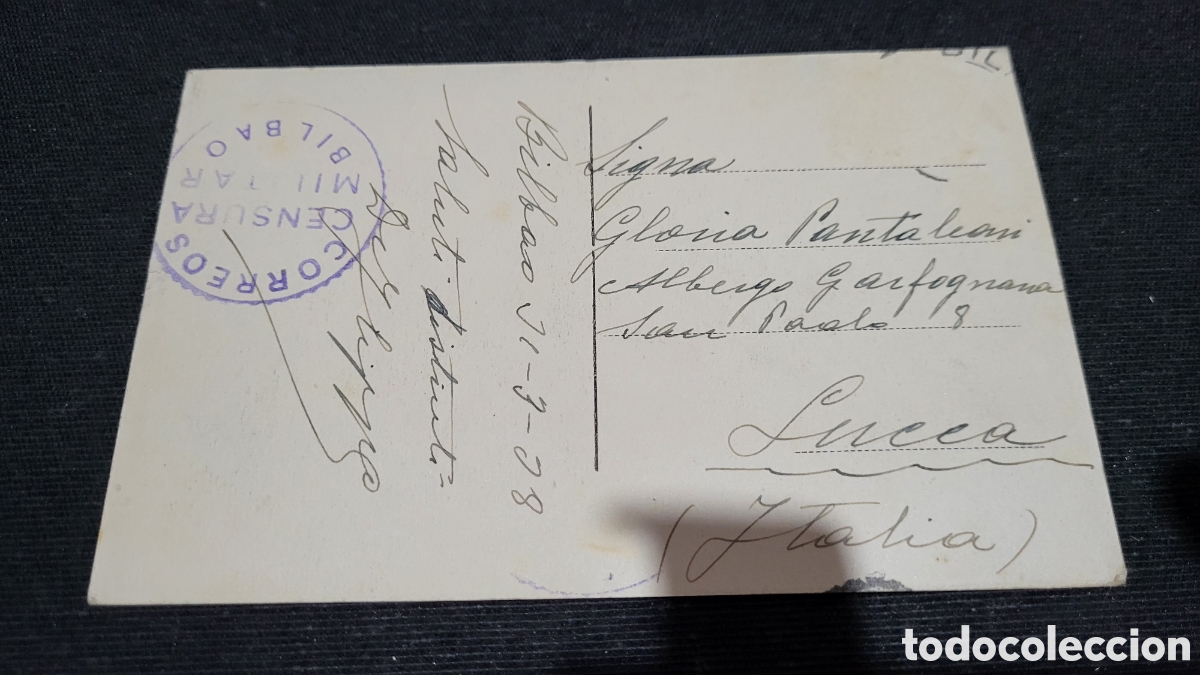 CORREOS
CENSURA
MILITAR
BILBAO
Bilbao 31-3-38
Saluti distinti=
Signa
Gloria Pantaleoni
Albergo Garfagnana
San Paolo 8
Lucca
(Italia)
todocoleccion